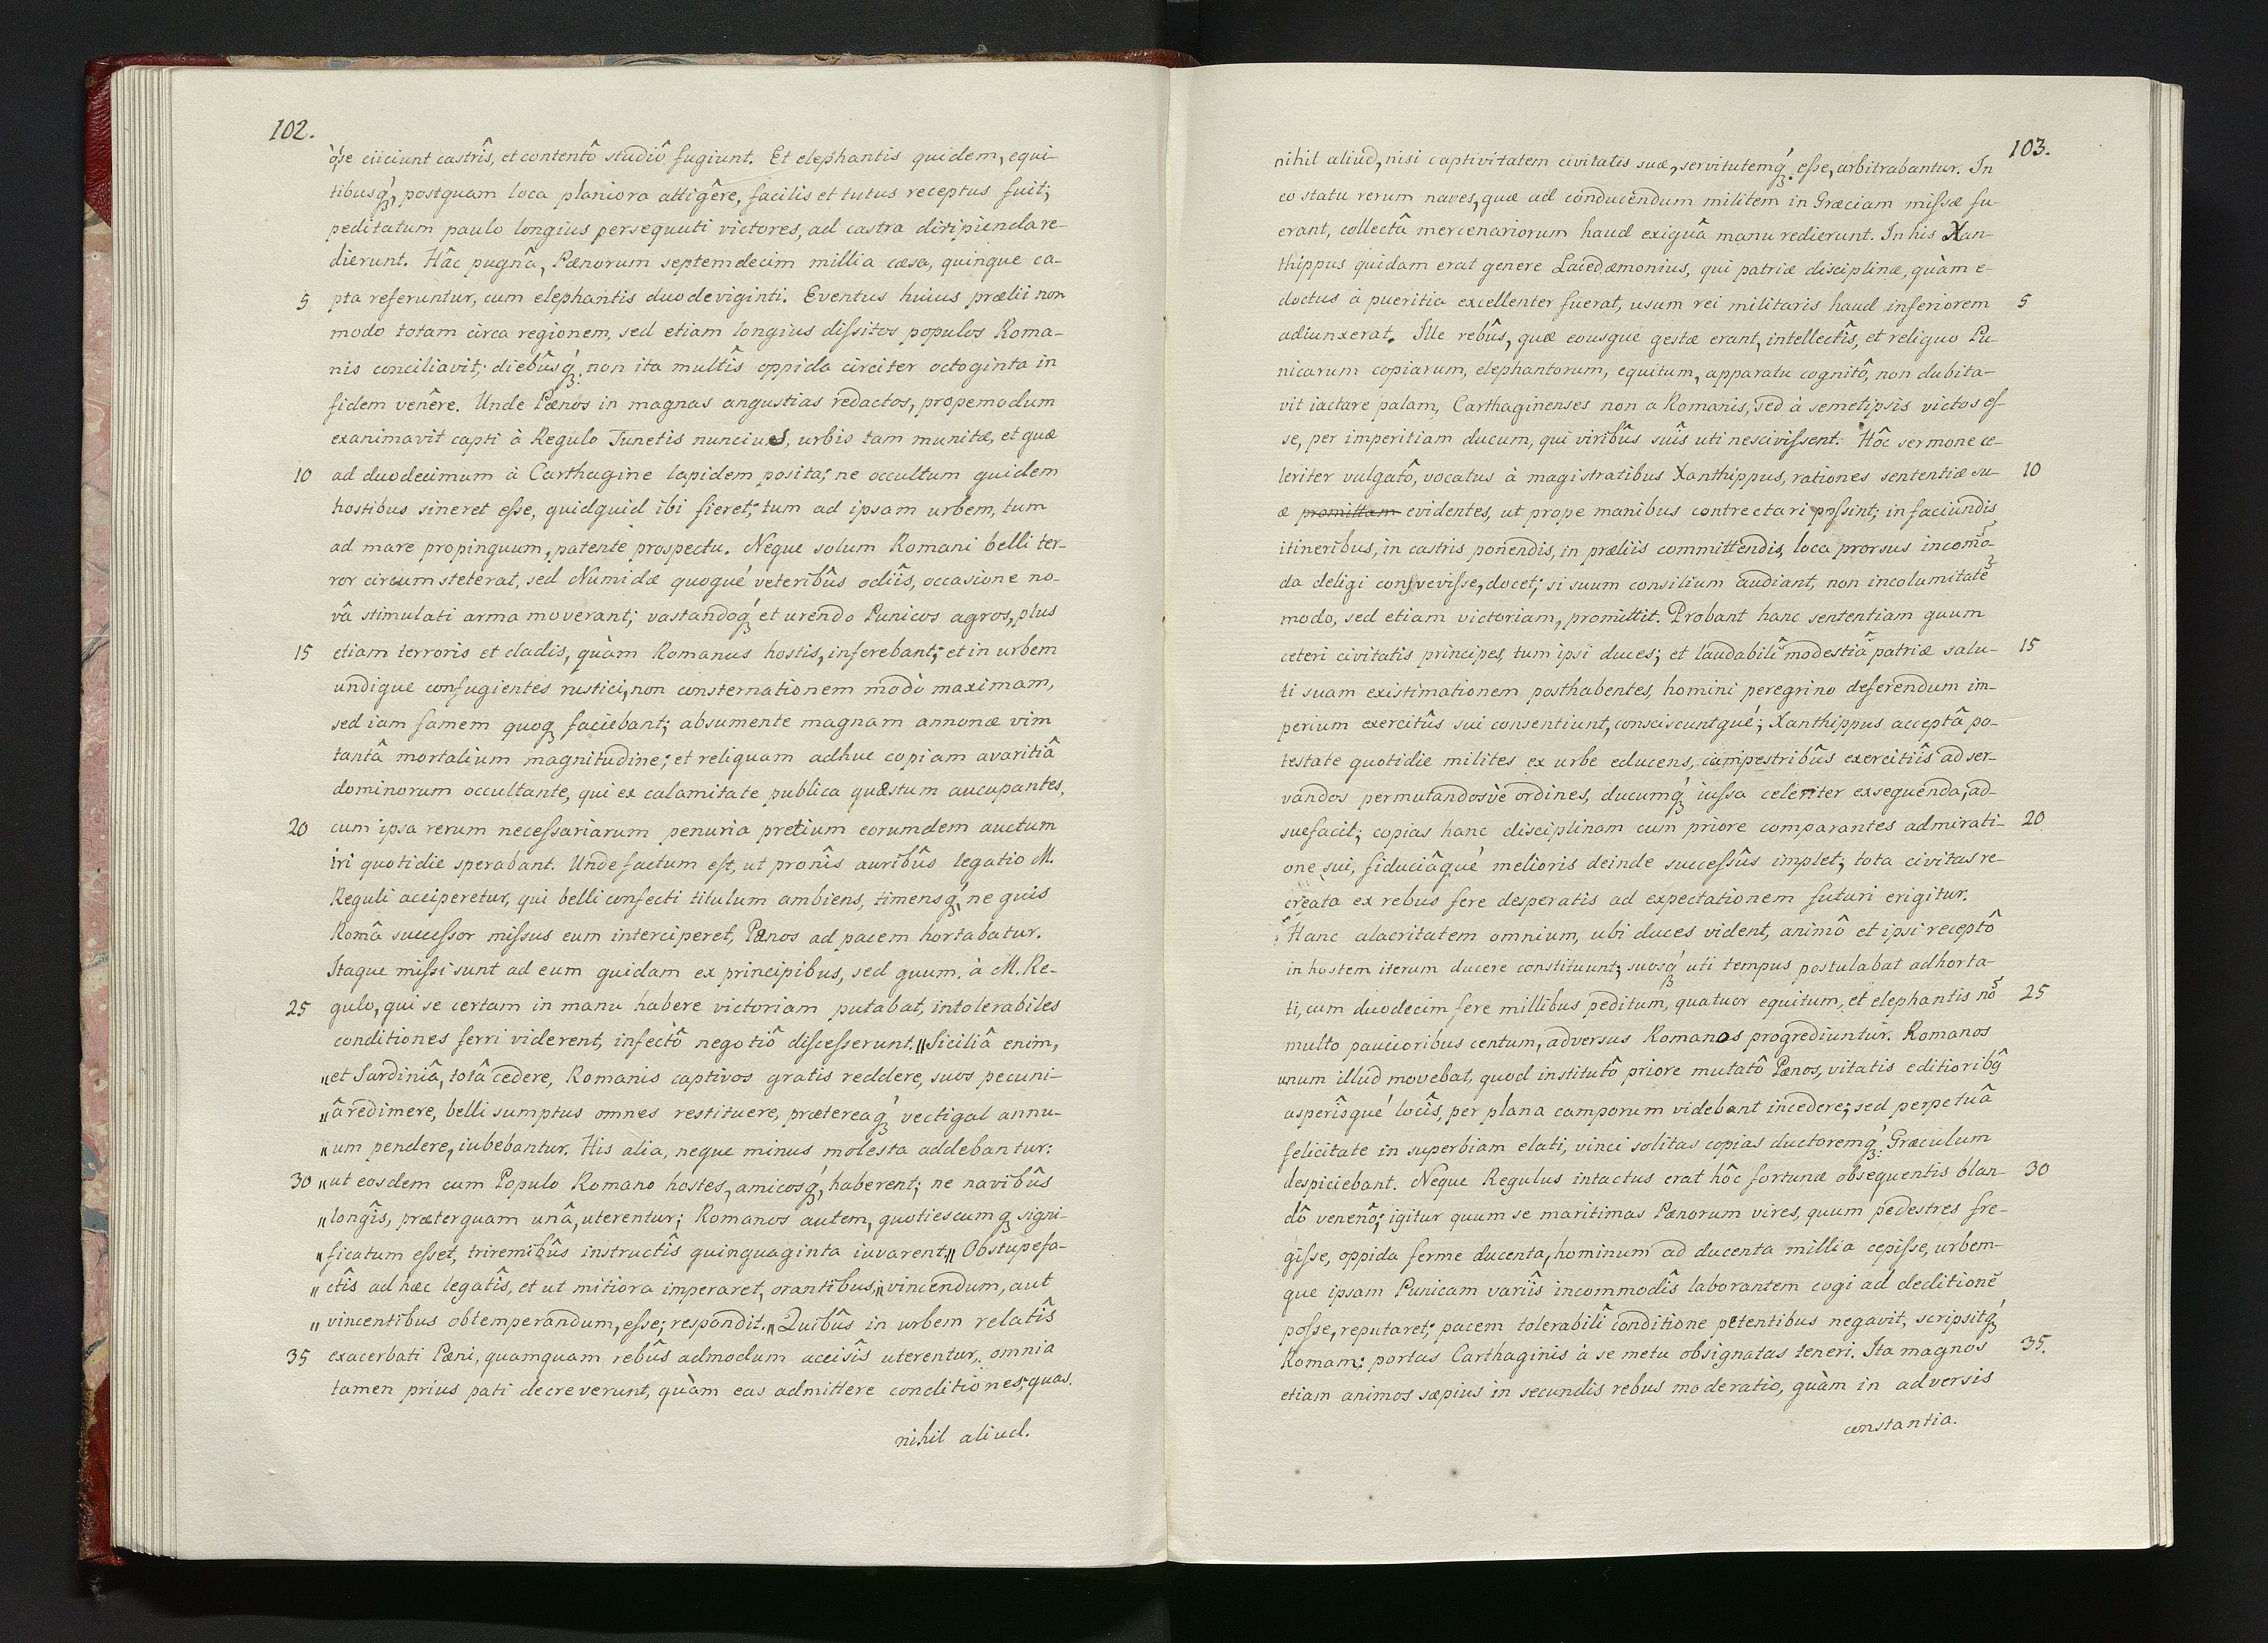 102.
ôsse eiiciunt castrîs, et contentô studiô fugiunt. Et elephantis quidem, equi-
tibusq́, postquam loca planiora attigêre, facilis et tutus receptus fuit;
peditatum paulo longius persequuti victores, ad castra diripienda re-
dierunt. Hâc pugnâ, Pænorum septemdecim millia cæsa, quinque ca-
5 pta referuntur, cum elephantis duodeviginti. Eventus huius prælii non
modo totam circa regionem, sed etiam longius dissitos populos Roma-
nis conciliavit; diebûsq́; non ita multîs oppida circiter octoginta in
fidem venêre. Unde Pænos in magnas angustias redactos, propemodum
exanimavit capti à Regulo Tunetis nuncius, urbis tam munitæ, et quæ
10 ad duodecimum à Carthagine lapidem posita; ne occultum quidem
hostibus sineret esse, quidquid ibi fieret; tum ad ipsam urbem, tum
ad mare propinquum, patente prospectu. Neque solum Romani belli ter-
ror circumsteterat, sed Numidæ quoqué veteribûs odiîs, occasione no-
vâ stimulati arma moverant; vastandoq́ et urendo Punicos agros, plus
15 etiam terroris et cladis, quàm Romanus hostis, inferebant; et in urbem
undique confugientes rustici, non consternationem modò maximam,
sed iam famem quoq faciebant; absumente magnam annonæ vim
tantâ mortalium magnitudine; et reliquam adhuc copiam avaritiâ
dominorum occultante, qui ex calamitate publica quæstum aucupantes,
20 cum ipsa rerum necessariarum penuria pretium eorumdem auctum
iri quotidie sperabant. Unde factum est, ut pronîs auribûs legatio M.
Reguli acciperetur, qui belli confecti titulum ambiens, timensq́, ne quis
Româ successor missus eum interciperet, Pænos ad pacem hortabatur.
Itaque missi sunt ad eum quidam ex principibus, sed quum, à M. Re-
25 gulo, qui se certam in manu habere victoriam putabat, intolerabiles
conditiones ferri viderent, infectô negotiô discesserunt. „Siciliâ enim,
„et Sardiniâ, totâ cedere, Romanis captivos gratis reddere, suos pecuni-
„â redimere, belli sumptus omnes restituere, prætereaq́ vectigal annu-
„um pendere, iubebantur. His alia, neque minus molesta addebantur:
30 „ut eosdem cum Populo Romano hostes, amicosq́, haberent; ne navibûs
„longîs, præterquam unâ, uterentur; Romanos autem, quotiescumq signi-
„ficatum esset, triremibûs instructîs quinquaginta iuvarent.„ Obstupefa-
„ctîs ad hæc legatîs, et ut mitiora imperaret, orantibus, „vincendum, aut
„vincentibus obtemperandum, esse; respondit.„ Quibûs in urbem relatîs
35 exacerbati Pæni, quamquam rebûs admodum accisîs uterentur, omnia
tamen prius pati decreverunt, quàm eas admittere conditiones; quas.
nihil aliud.
103.
nihil aliud, nisi captivitatem civitatis suæ, servitutemq́; esse, arbitrabantur. In
eo statu rerum naves, quæ ad conducendum militem in Græciam missæ fu-
erant, collectâ mercenariorum haud exiguâ manu redierunt. In his Xan-
thippus quidam erat genere Lacedæmonius, qui patriæ disciplinæ, quàm e-
doctus à pueritia excellenter fuerat, usum rei militaris haud inferiorem 5
adiunxerat. Ille rebûs, quæ eousque gestæ erant, intellectîs, et reliquo Pu-
nicarum copiarum, elephantorum, equitum, apparatu cognitô, non dubita-
vit iactare palam, Carthaginenses non a Romanis, sed à semetipsis victos es-
se, per imperitiam ducum, qui viribûs suîs uti nescivissent. Hôc sermone ce-
leriter vulgatô, vocatus à magistratibus Xanthippus, rationes sententiæ su- 10
æ promittam evidentes, ut prope manibus contrectari possint; in faciundis
itineribus, in castris ponendis, in præliis committendis, loca prorsus incom̃o-
da deligi consvevisse, docet; si suum consilium audiant, non incolumitatẽ
modo, sed etiam victoriam, promittit. Probant hanc sententiam quum
ceteri civitatis principes, tum ipsi duces; et laudabilî modestiâ patriæ salu- 15
ti suam existimationem posthabentes, homini peregrino deferendum im-
perium exercitûs sui consentiunt, consciscuntqué; Xanthippus acceptâ po-
testate quotidie milites ex urbe educens, campestribûs exercitiîs ad ser-
vandos permutandosve ordines, ducumq́ iussa celeriter exsequenda, ad-
suefacit; copias hanc disciplinam cum priore comparantes admirati- 20
one sui, fiduciâqué melioris deinde successûs implet; tota civitas re-
creata ex rebus fere desperatis ad expectationem futuri erigitur.
Hanc alacritatem omnium, ubi duces vident, animô et ipsi receptô
in hostem iterum ducere constituunt; suosq́ uti tempus postulabat adhorta-
ti, cum duodecim fere millibus peditum, quatuor equitum, et elephantis nõ 25
multo paucioribus centum, adversus Romanos progrediuntur. Romanos
unum illud movebat, quod institutô priore mutatô Pænos, vitatis editiorib9̂
asperîsqué locîs, per plana camporum videbant incedere; sed perpetuâ
felicitate in superbiam elati, vinci solitas copias ductoremq́; Græculum
despiciebant. Neque Regulus intactus erat hôc fortunæ obsequentis blan- 30
dô venenô; igitur quum se maritimas Pænorum vires, quum pedestres fre-
gisse, oppida ferme ducenta, hominum ad ducenta millia cepisse, urbem-
que ipsam Punicam variîs incommodîs laborantem cogi ad deditionẽ
posse, reputaret; pacem tolerabilî conditione petentibus negavit, scripsitq́
Romam: portas Carthaginis à se metu obsignatas teneri. Ita magnos 35.
etiam animos sæpius in secundis rebus moderatio, quàm in adversis
constantia.